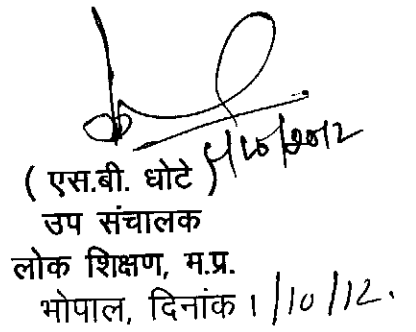 1/10/2012
( एस.बी. धोटे )
उप संचालक
लोक शिक्षण, म.प्र.
भोपाल, दिनांक 1/10/12.